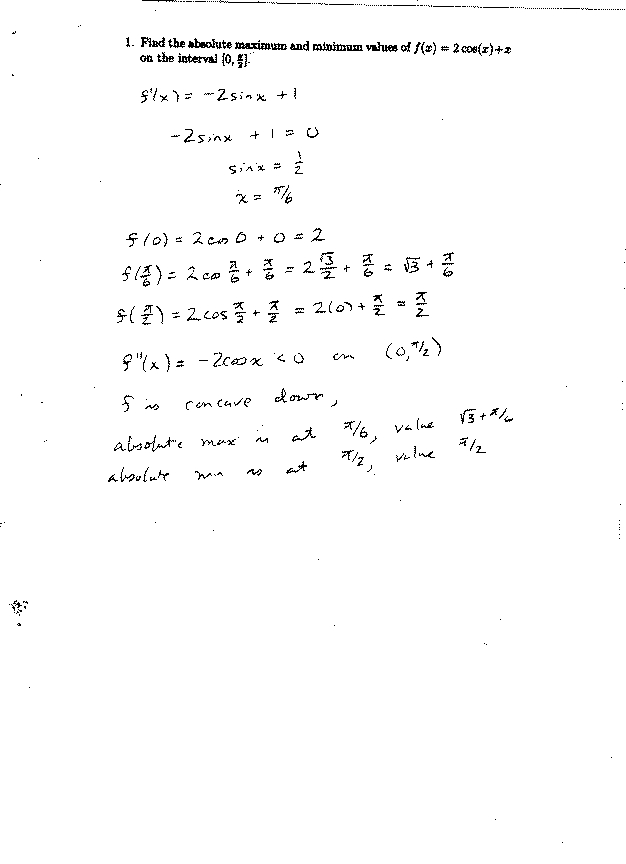 1. Find the absolute maximum and minimum values of f(x) = 2 cos(x)+x
on the interval [0, π/2].
f'(x) = -2 sin x + 1
-2 sin x + 1 = 0
sin x = 1/2
x = π/6
f(0) = 2 cos 0 + 0 = 2
f(π/6) = 2 cos π/6 + π/6 = 2 √3/2 + π/6 = √3 + π/6
f(π/2) = 2 cos π/2 + π/2 = 2(0) + π/2 = π/2
f''(x) = -2 cos x < 0 on (0, π/2)
f is concave down,
absolute max is at π/6, value √3 + π/6
absolute min is at π/2, value π/2